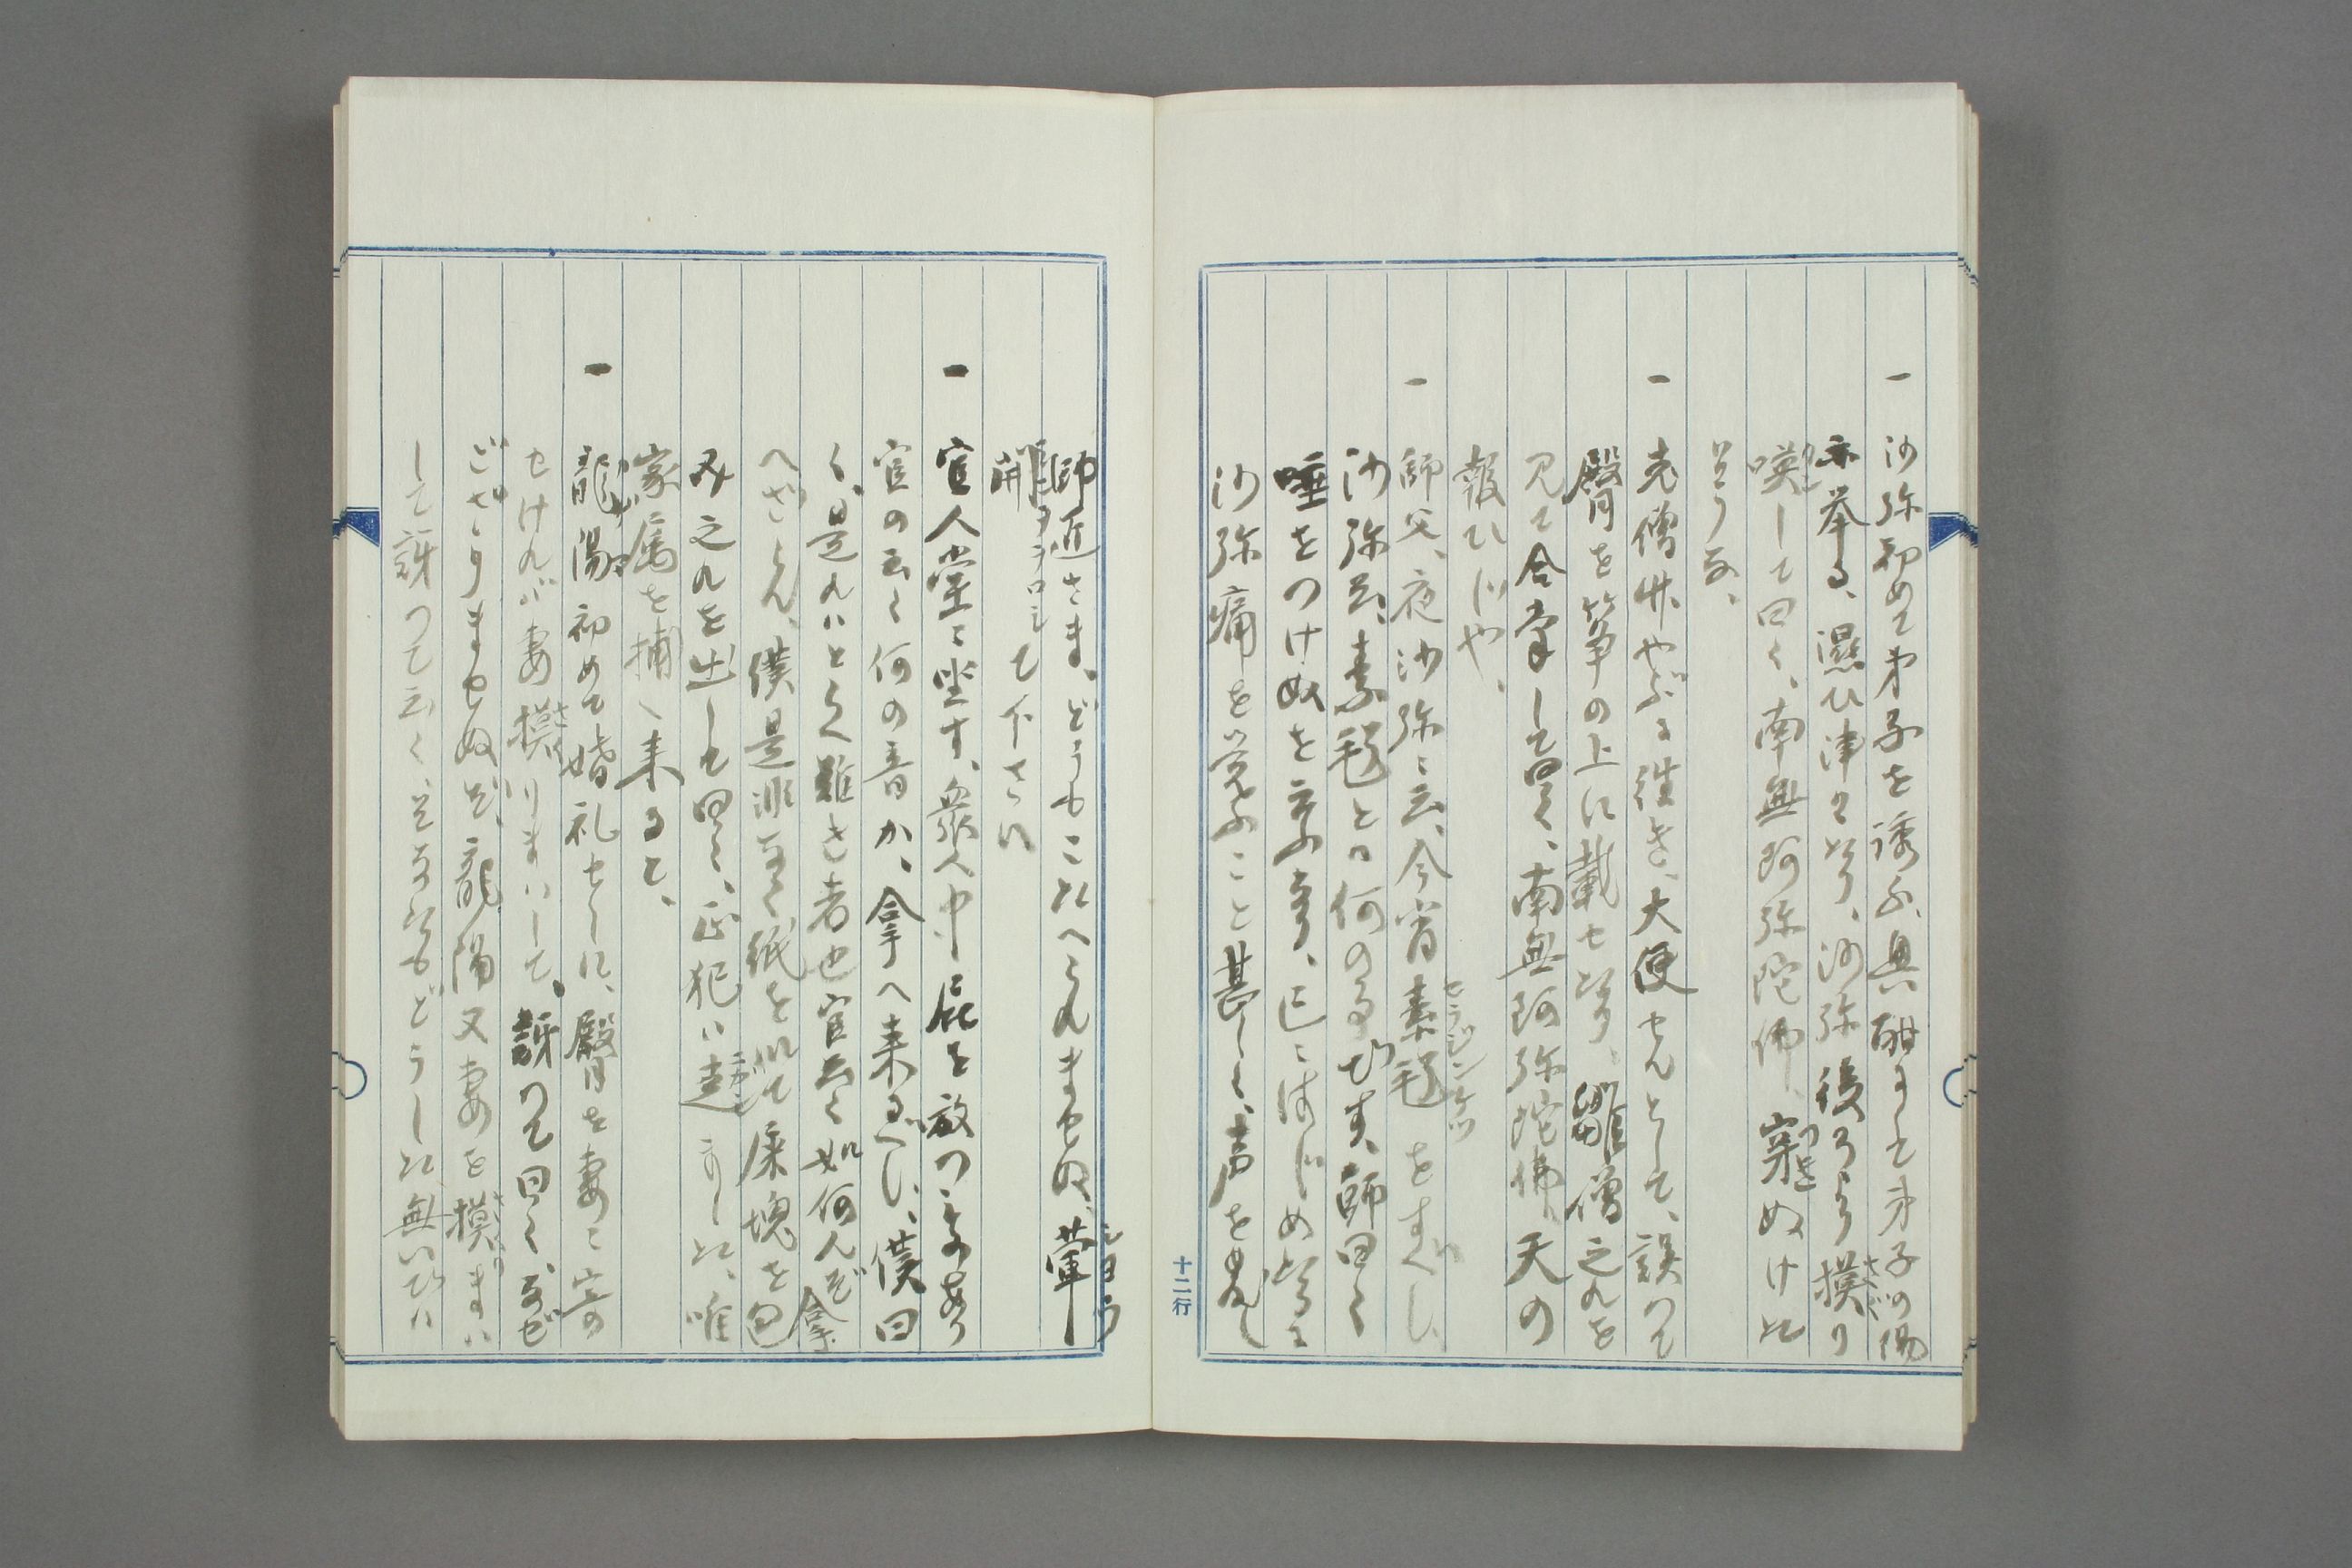 一 沙弥初めて弟子を誘ふ、興酣にして弟子の陽
亦挙る、濕ひ津々たり、沙弥後ろより摸り
嘆して曰く、南無阿弥陀佛、穿ぬけた
さうな、
一 老僧竹やぶに往き、大便せんとして、誤つて
臀を筝の上に載せたり、雛僧之れを
見て合掌して曰く、南無阿弥陀佛、天の
報ひじや、
一 師父、夜沙弥に云、今宵素毱をすべし、
沙弥云、素毱とは何の事ぞ、師曰く
唾をつけぬを云ふなり、已にはじめたるに
沙弥痛を覚ふこと甚しく、声をあげて
十二行
師匠さま、どうもこたへられませぬ、葷
ヲヲロシて下さい
開
一 官人堂に坐す、衆人中屁を放つ音あり
官の云く何の音か、拿へ来るべし、僕曰
く、是れはとらへ難き者也官云く如何んぞ拿
へざらん、僕是非なく紙を以て屎塊を包
み之れを出して曰く、正犯は逃しました、唯
家属を捕へ来ると、
一 龍陽初めて婚礼せしに、臀を妻に寄
せければ妻摸りまはして、訝つて曰く、なぜ
ござりませぬぞ、龍陽又妻を摸りまは
して訝つて云く、そなたもどうした、無いぞい